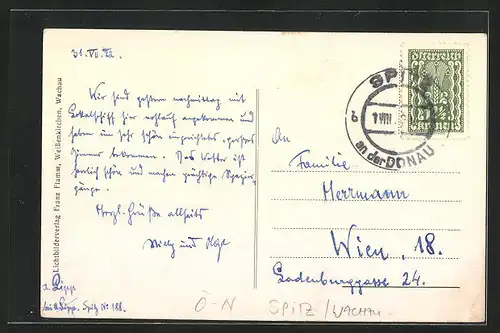 31. VII. 22.
Wir sind gestern nachmittag mit
Lokalschiff hier wohlauf angekommen und
haben ein sehr schön eingerichtetes, großes
Zimmer bekommen. Das Wetter ist
herrlich schön und machen prächtige Spazier-
gänge.
Herzl. Grüße allseits
und
Spitz No 188.
Lichtbilderverlag Franz Flamm, Weißenkirchen, Wachau
Österreich
SPITZ
1 VIII
b
an der DONAU
An
Familie
Herrmann
Wien, 18.
Ladenburggasse 24.
Ö-N SPITZ/WACHAU